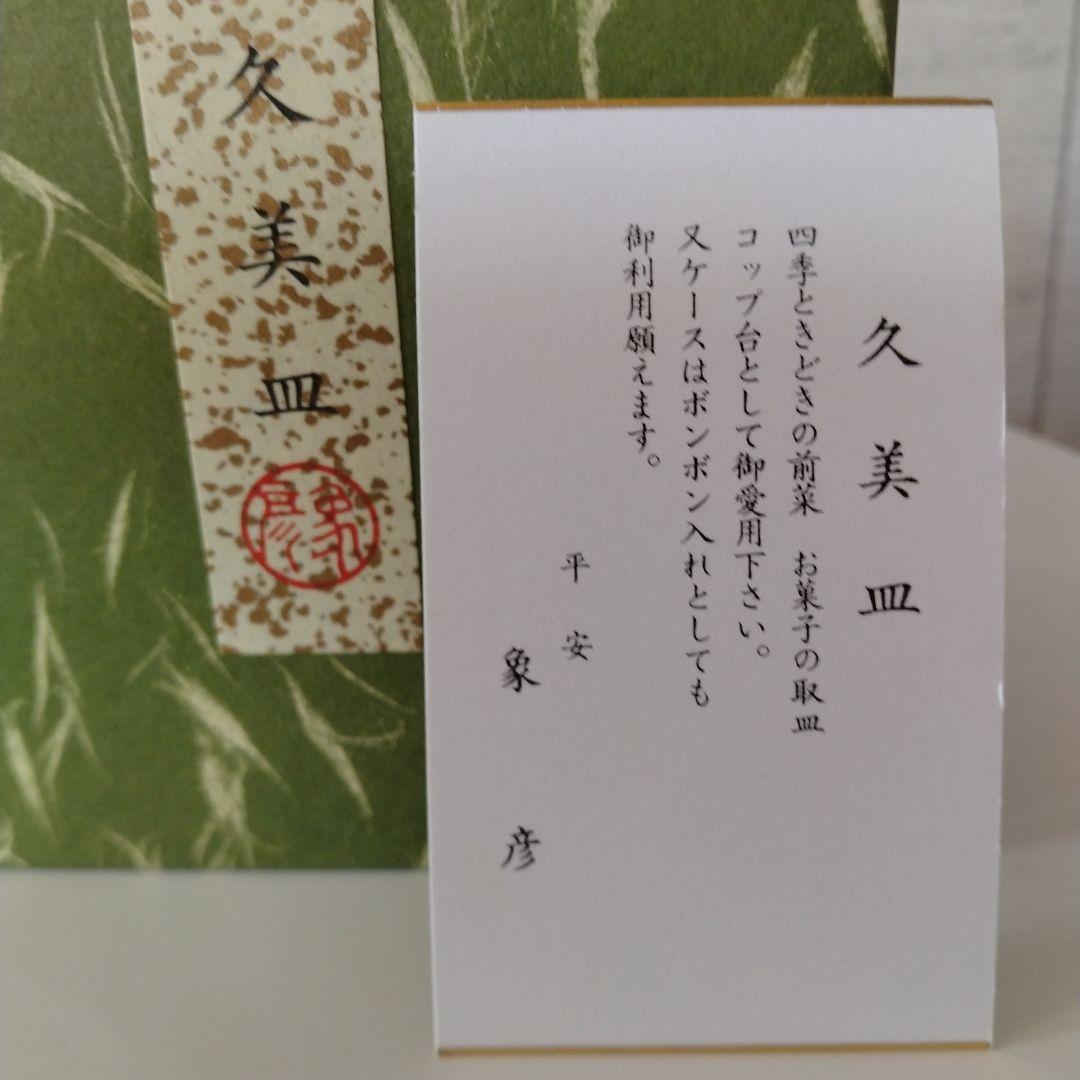 久美皿
象彦
久美皿
四季ときどきの前菜　お菓子の取皿
コップ台として御愛用下さい。
又ケースはボンボン入れとしても
御利用願えます。
平安
象彦